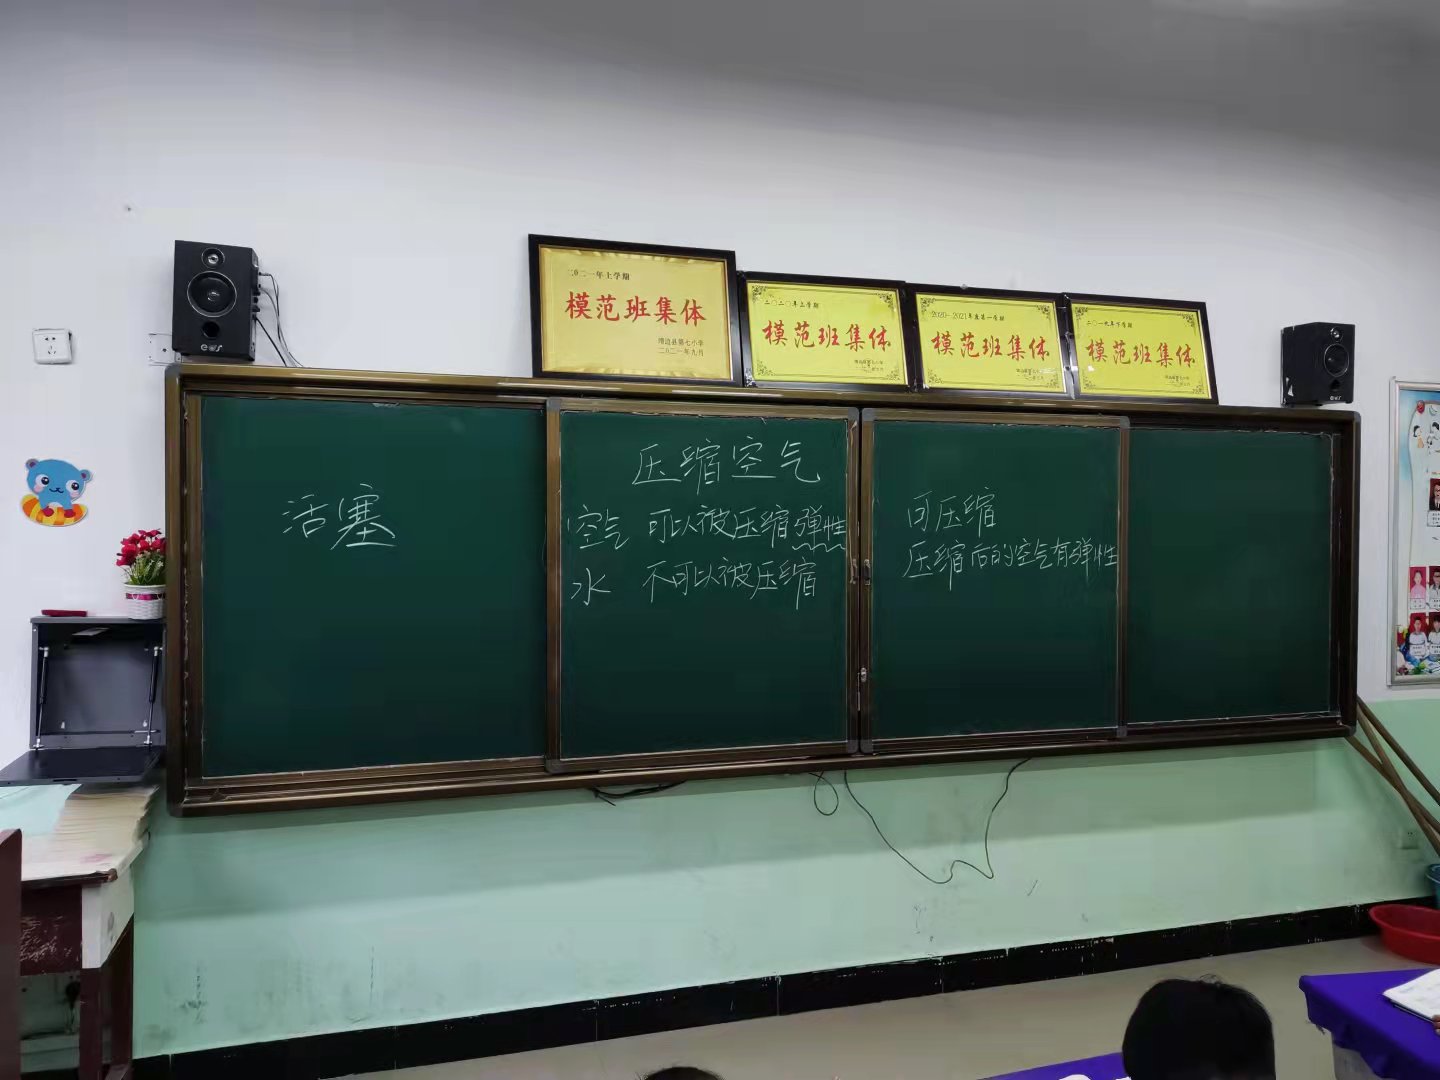 二〇二一年上学期
模范班集体
第七小学
二〇二一年九月
二〇二〇年上学期
模范班集体
2020-2021年度第一学期
模范班集体
二〇一九年下学期
模范班集体
活塞
压缩空气
空气 可以被压缩弹性
水 不可以被压缩
可压缩
压缩后的空气有弹性